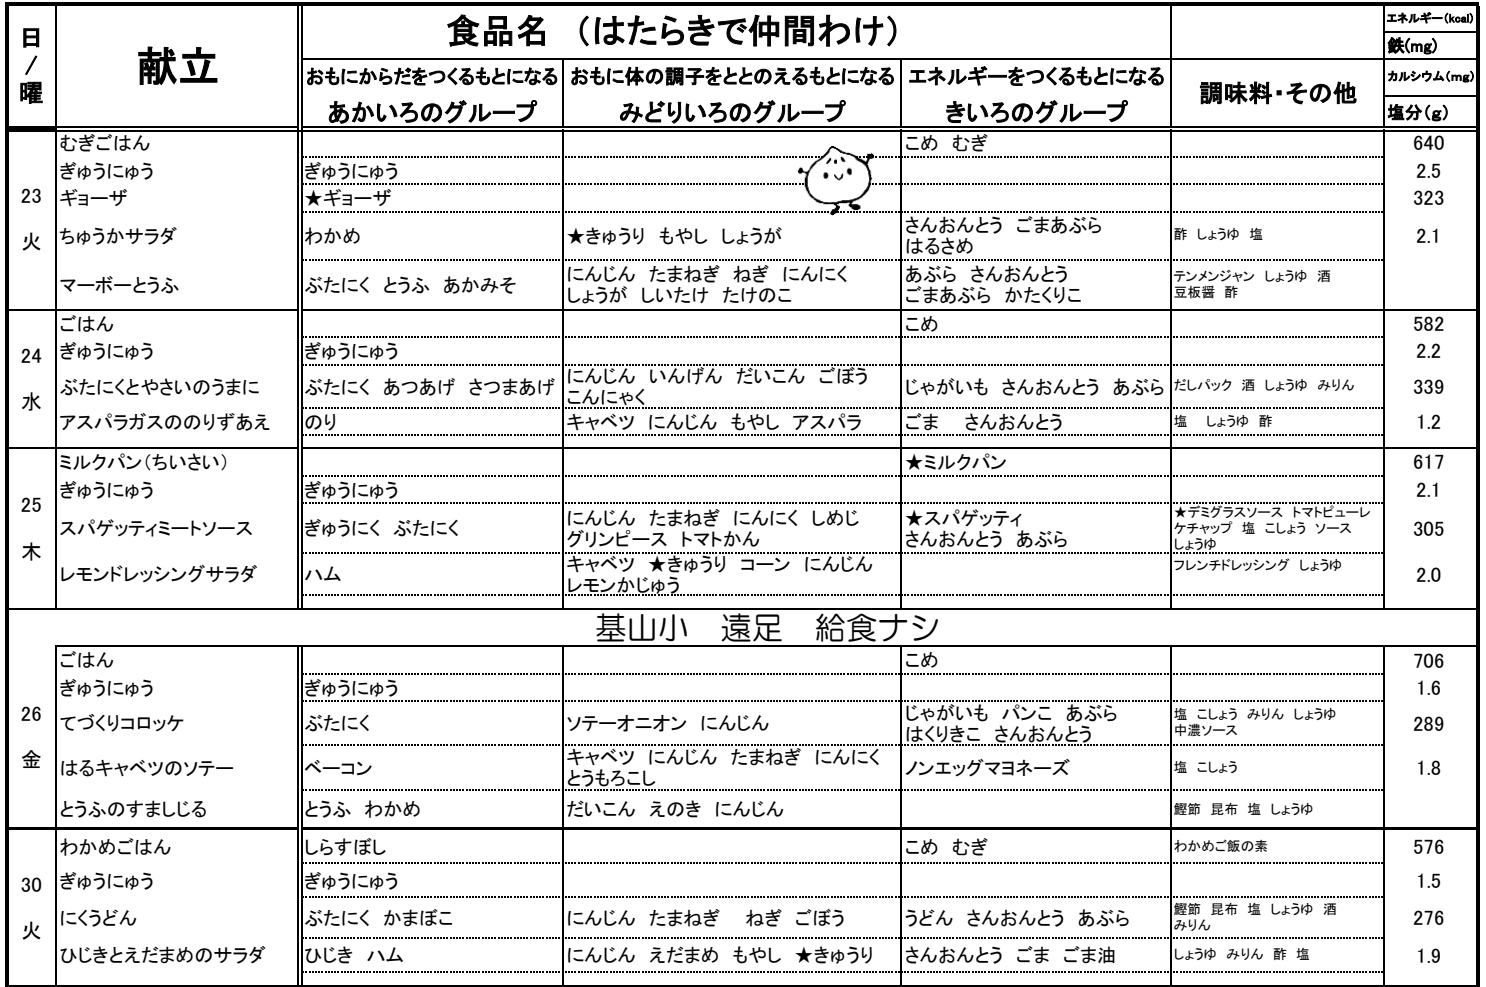 日/曜
献立
食品名 (はたらきで仲間わけ)
エネルギー(kcal)
鉄(mg)
カルシウム(mg)
塩分(g)
おもにからだをつくるもとになる
あかいろのグループ
おもに体の調子をととのえるもとになる
みどりいろのグループ
エネルギーをつくるもとになる
きいろのグループ
調味料・その他
23
火
むぎごはん こめ むぎ 640
ぎゅうにゅう ぎゅうにゅう 2.5
ギョーザ ★ギョーザ 323
ちゅうかサラダ わかめ ★きゅうり もやし しょうが
さんおんとう ごまあぶら
はるさめ
酢 しょうゆ 塩 2.1
マーボーとうふ ぶたにく とうふ あかみそ
にんじん たまねぎ ねぎ にんにく
しょうが しいたけ たけのこ
あぶら さんおんとう
ごまあぶら かたくりこ
テンメンジャン しょうゆ 酒
豆板醤 酢
24
水
ごはん こめ 582
ぎゅうにゅう ぎゅうにゅう 2.2
ぶたにくとやさいのうまに ぶたにく あつあげ さつまあげ
にんじん いんげん だいこん ごぼう
こんにゃく
じゃがいも さんおんとう あぶら だしパック 酒 しょうゆ みりん 339
アスパラガスののりずあえ のり キャベツ にんじん もやし アスパラ ごま さんおんとう 塩 しょうゆ 酢 1.2
25
木
ミルクパン(ちいさい) ★ミルクパン 617
ぎゅうにゅう ぎゅうにゅう 2.1
スパゲッティミートソース ぎゅうにく ぶたにく
にんじん たまねぎ にんにく しめじ
グリンピース トマトかん
★スパゲッティ
さんおんとう あぶら
★デミグラスソース トマトピューレ
ケチャップ 塩 こしょう ソース
しょうゆ
305
レモンドレッシングサラダ ハム
キャベツ ★きゅうり コーン にんじん
レモンかじゅう
フレンチドレッシング しょうゆ 2.0
基山小 遠足 給食ナシ
26
金
ごはん こめ 706
ぎゅうにゅう ぎゅうにゅう 1.6
てづくりコロッケ ぶたにく ソテーオニオン にんじん
じゃがいも パンこ あぶら
はくりきこ さんおんとう
塩 こしょう みりん しょうゆ
中濃ソース
289
はるキャベツのソテー ベーコン
キャベツ にんじん たまねぎ にんにく
とうもろこし
ノンエッグマヨネーズ 塩 こしょう 1.8
とうふのすましじる とうふ わかめ だいこん えのき にんじん 鰹節 昆布 塩 しょうゆ
30
火
わかめごはん しらすぼし こめ むぎ わかめご飯の素 576
ぎゅうにゅう ぎゅうにゅう 1.5
にくうどん ぶたにく かまぼこ にんじん たまねぎ ねぎ ごぼう うどん さんおんとう あぶら
鰹節 昆布 塩 しょうゆ 酒
みりん
276
ひじきとえだまめのサラダ ひじき ハム にんじん えだまめ もやし ★きゅうり さんおんとう ごま ごま油 しょうゆ みりん 酢 塩 1.9